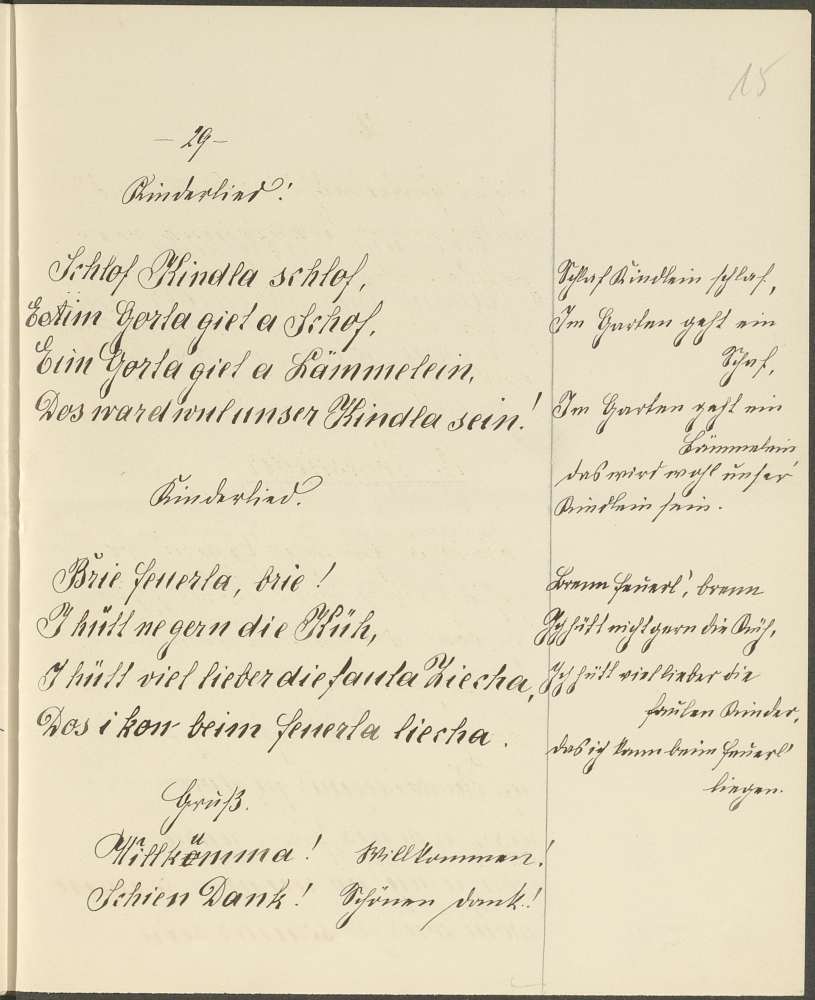 15
- 29 -
Kinderlied!
Schlof Kindla schlof,
Eim Gorta giet a Schof,
Eim Gorta giet a Lämmelein,
Dos ward wul unser Kindla sein!
Schlaf Kindlein schlaf,
Im Garten geht ein
Schaf,
Im Garten geht ein
Lämmelein
das wird wohl unser
Kindlein sein.
Kinderlied.
Brie feuerla, brie!
I hütt ne gern die Küh,
I hütt viel lieber die faula Ziecha,
Dos i kon beim feuerla liecha.
Brenn feuerl', brenn
Ich hütt nicht gern die Küh,
Ich hütt viel lieber die
faulen Rinder,
das ich kann beim feuerl'
liegen.
Gruß.
Willkümma! Willkommen!
Schien Dank! Schönen Dank!